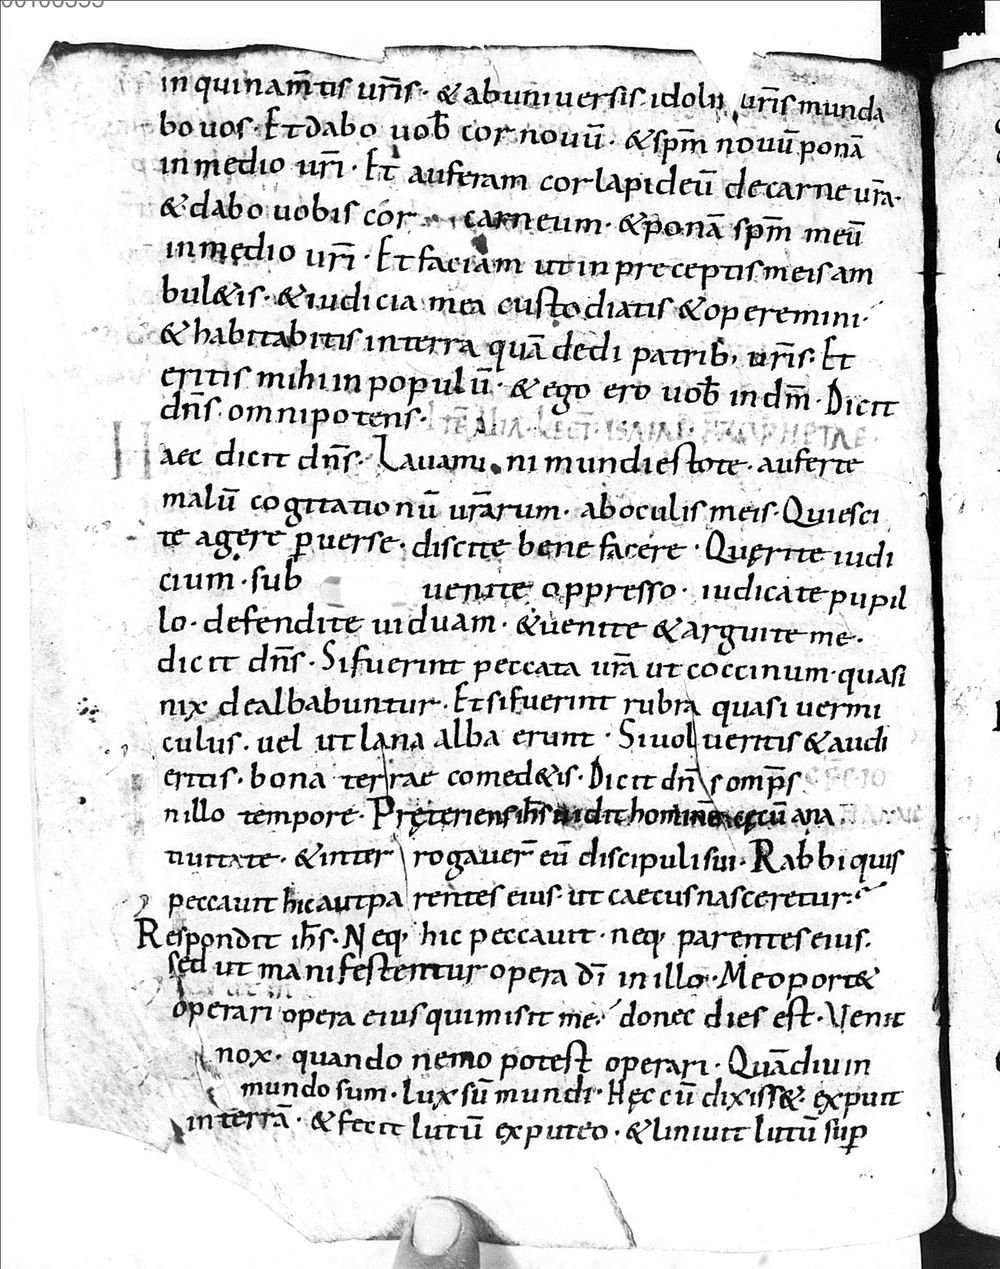 inquinam̄tis ur̄is · & ab uniuersis idolis ur̄is munda
bo uos · Et dabo uob̄ cor nouū · & sp̄m nouū ponā
in medio ur̄i · Et auferam cor lapideū de carne ur̄a ·
& dabo uobis cor carneum · & ponā sp̄m meū
in medio ur̄i · Et faciam ut in preceptis meis am
bul&is · & iudicia mea custodiatis & operemini ·
& habitabitis in terra quā dedi patrib; ur̄is · Et
eritis mihi in populū · & ego ero uob̄ in dm̄ · Dicit
dn̄s omnipotens · ALIA · LECT̄ · ISAIAE · PROPHETAE ·
Haec dicit dn̄s · Lauamini mundi estote · auferte
malū cogitationū ur̄arum · ab oculis meis · Quiesci
te agere puerse · discite bene facere · Querite iudi
cium · sub uenite oppresso · iudicate pupil
lo · defendite uiduam · & uenite & arguite me ·
dicit dn̄s · Si fuerint peccata ur̄a ut coccinum · quasi
nix dealbabuntur · Et si fuerint rubra quasi uermi
culus · uel ut lana alba erunt · Si uolueritis & audi
eritis · bona terrae comed&is · Dicit dn̄s omp̄s
nillo tempore · Pręteriens ih̄s uidit hominē cęcū a na
tiuitate · & interrogauer̄ eū discipuli sui · Rabbi quis
peccauit hic aut parentes eius · ut caecus nasceretur ·
Respondit ih̄s · Neq; hic peccauit · neq; parentes eius ·
sed ut manifestentur opera dī in illo · Me oport&
operari opera eius qui misit me · donec dies est · Uenit
nox · quando nemo potest operari · Quādiu in
mundo sum · lux sū mundi · Hęc cū dixiss& · expuit
in terrā · & fecit lutū ex puteo · & liniuit lutū sup